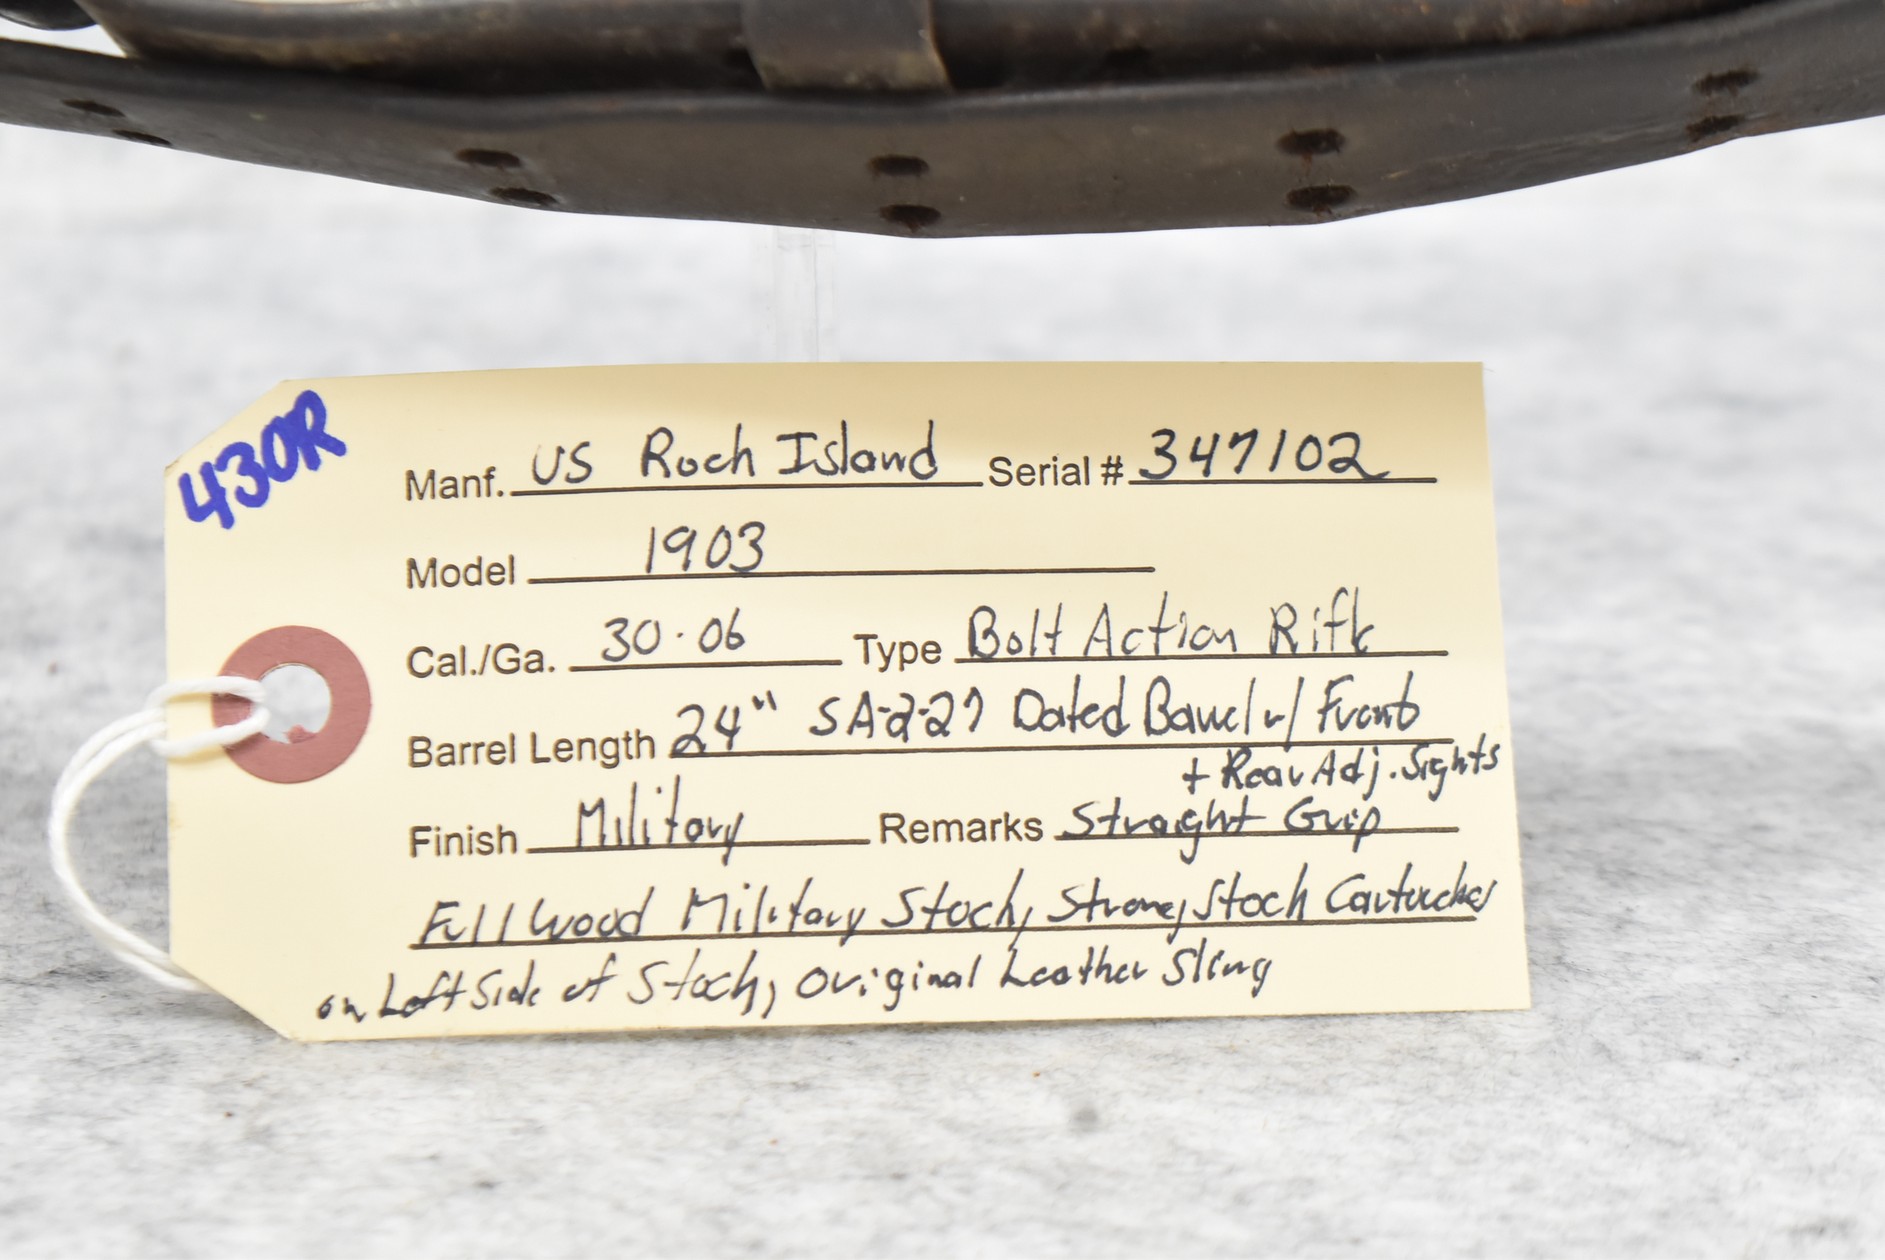 430R
Manf. US Rock Island Serial # 347102
Model 1903
Cal./Ga. 30-06 Type Bolt Action Rifle
Barrel Length 24" SA-2-27 Dated Barrel w/ Front
+ Rear Adj. Sights
Finish Military Remarks Straight Grip
Full Wood Military Stock, Strong Stock Cartouches
on Left Side of Stock, Original Leather Sling